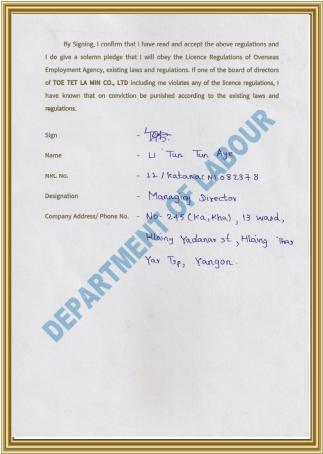 By Signing, I confirm that I have read and accept the above regulations and
I do give a solemn pledge that I will obey the Licence Regulations of Overseas
Employment Agency, existing laws and regulations. If one of the board of directors
of TOE TET LA MIN CO., LTD including me violates any of the licence regulations, I
have known that on conviction be punished according to the existing laws and
regulations.
Sign -
Name - U Tun Tun Aye
NRC No. - 11/Katana(N) 082878
Designation - Managing Director
Company Address/ Phone No. - No-245 (Ka, Kha), 13 ward,
Hlaing Yadanar st, Hlaing Thar
Yar Tsp, Yangon.
DEPARTMENT OF LABOUR